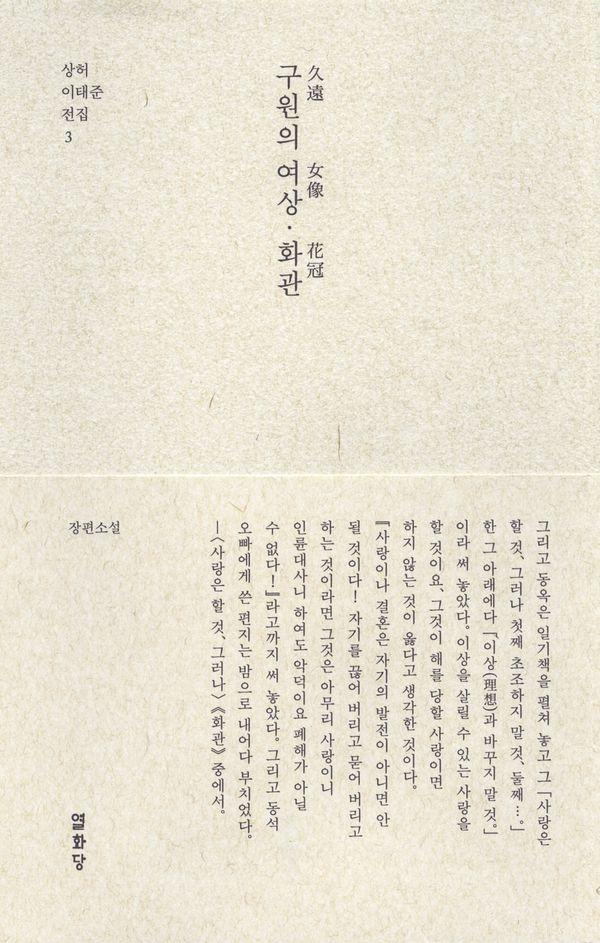 상허
이태준
전집
3
久遠 女像 花冠
구원의 여상·화관
장편소설
그리고 동옥은 일기책을 펼쳐 놓고 그 「사랑은
할 것, 그러나 첫째 초조하지 말 것, 둘째…。」
한 그 아래에다 「이상(理想)과 바꾸지 말 것。」
이라 써 놓았다. 이상을 살릴 수 있는 사랑을
할 것이요, 그것이 해를 당할 사랑이면
하지 않는 것이 옳다고 생각한 것이다.
『사랑이나 결혼은 자기의 발전이 아니면 안
될 것이다! 자기를 끊어 버리고 묻어 버리고
하는 것이라면 그것은 아무리 사랑이니
인륜대사니 하여도 악덕이요 폐해가 아닐
수 없다!』라고까지 써 놓았다. 그리고 동석
오빠에게 쓴 편지는 밤으로 내어다 부치었다.
—〈사랑은 할 것, 그러나〉《화관》 중에서.
열화당